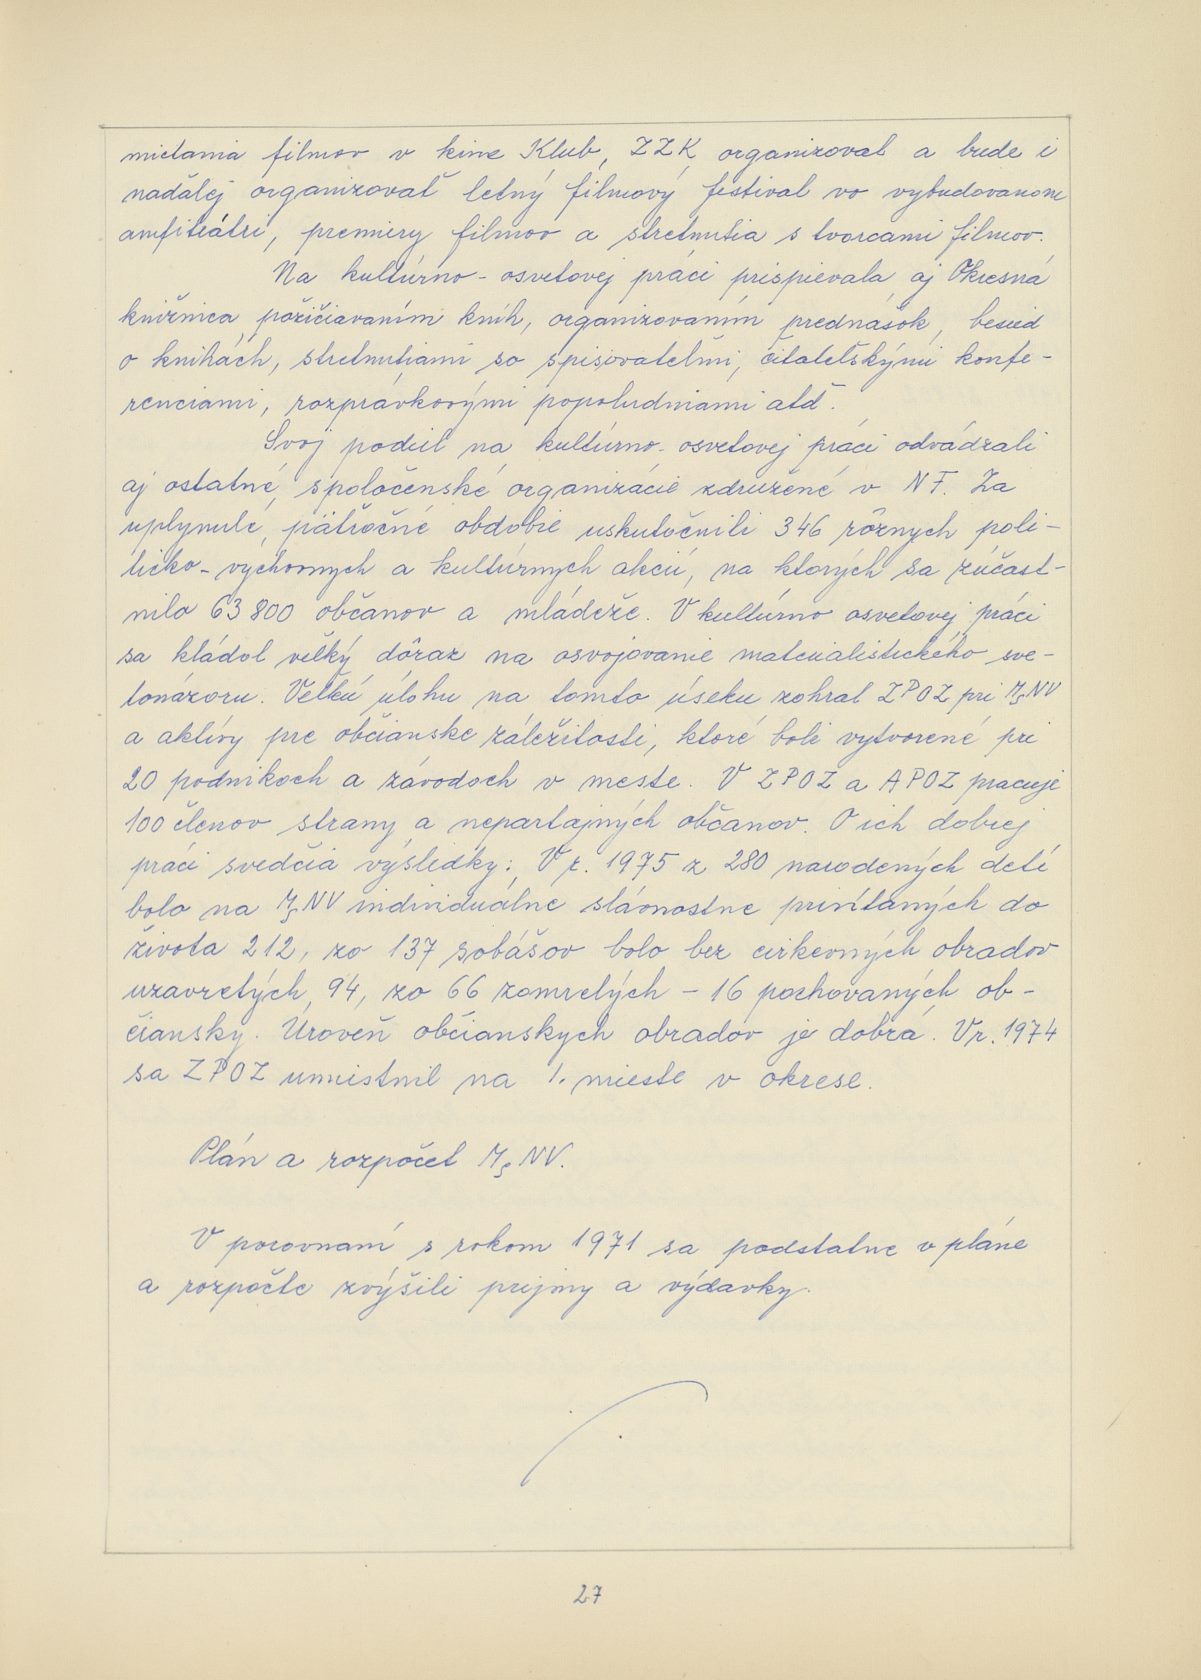 mietania filmov v kine Klub, ZZK organizoval a bude i
naďalej organizovať letný filmový festival vo vybudovanom
amfiteátri, premiery filmov a stretnutia s tvorcami filmov.
Na kultúrno-osvetovej práci prispievala aj Okresná
knižnica požičiavaním kníh, organizovaním prednášok, besied
o knihách, stretnutiami so spisovateľmi, čitateľskými konfe-
renciami, rozprávkovými popoludniami atď.
Svoj podiel na kultúrno-osvetovej práci odvádzali
aj ostatné spoločenské organizácie združené v NF. Za
uplynulé, päťročné obdobie uskutočnili 346 rôznych poli-
ticko-výchovných a kultúrnych akcií, na ktorých sa zúčast-
nilo 63 800 občanov a mládeže. V kultúrno osvetovej práci
sa kládol veľký dôraz na osvojovanie materialistického sve-
tonázoru. Veľkú úlohu na tomto úseku zohral ZPOZ pri MsNV
a aktívy pre občianske záležitosti, ktoré boli vytvorené pri
20 podnikoch a závodoch v meste. V ZPOZ a APOZ pracuje
100 členov strany a nepartajných občanov. O ich dobrej
práci svedčia výsledky: V r. 1975 z 280 narodených detí
bolo na MsNV individuálne slávnostne privítaných do
života 212, zo 137 sobášov bolo bez cirkevných obradov
uzavretých 94, zo 66 zomrelých - 16 pochovaných ob-
čiansky. Úroveň občianskych obradov je dobrá. V r. 1974
sa ZPOZ umiestnil na 1. mieste v okrese.
Plán a rozpočet MsNV.
V porovnaní s rokom 1971 sa podstatne v pláne
a rozpočte zvýšili príjmy a výdavky.
27